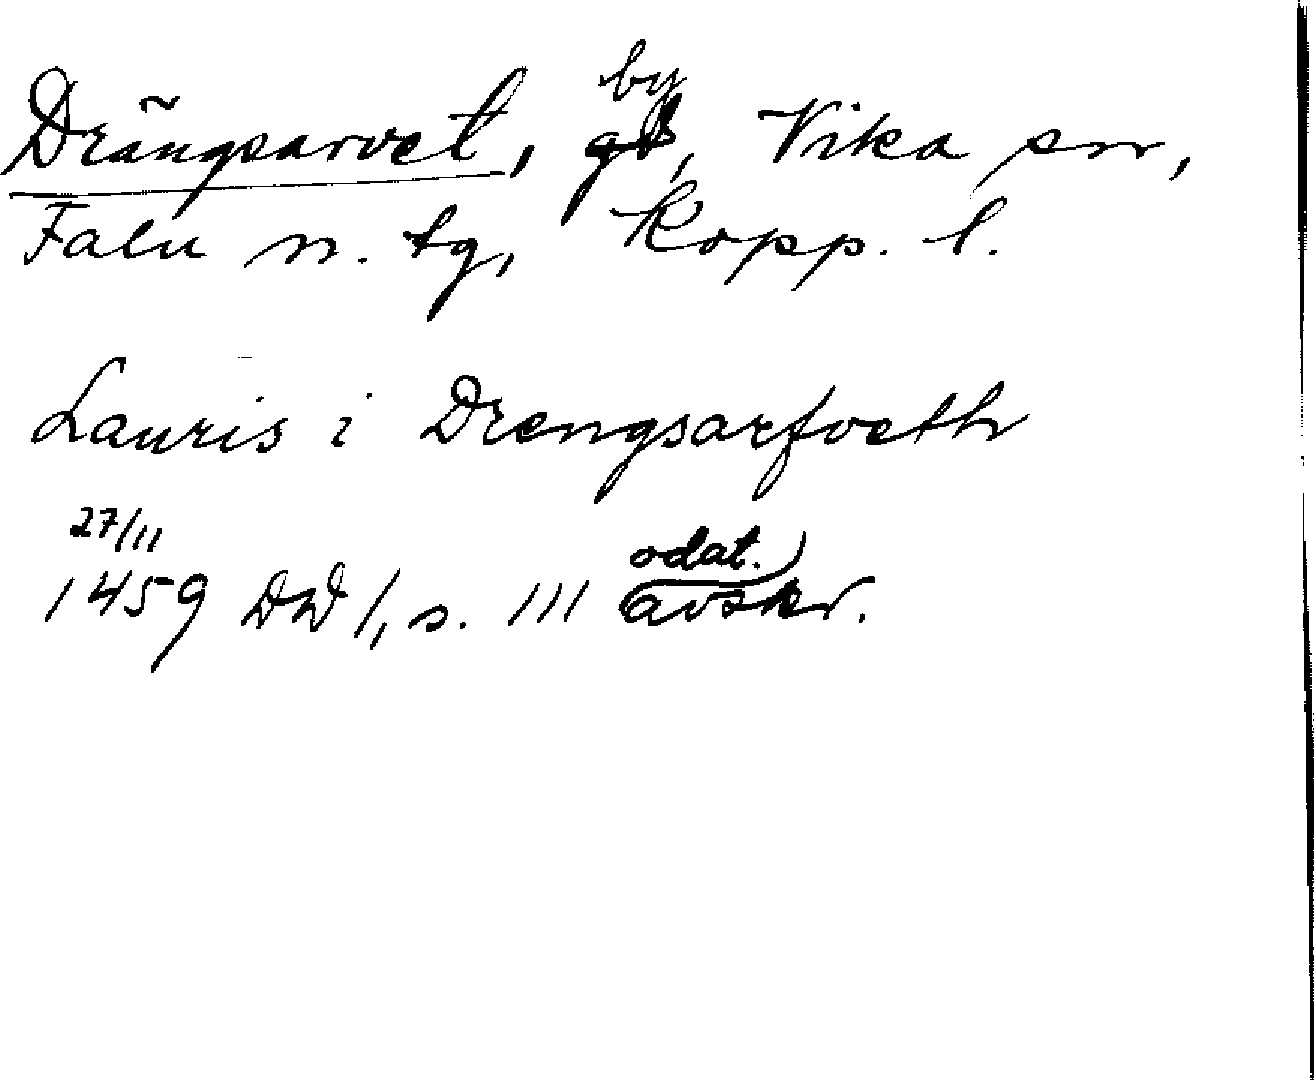 Drängsarvet, by, Vika sn,
Falu n. tg, Kopp. l.
Lauris i Drengsarfoeth
27/11
1459 DD 1, s. 111 odat. avskr.